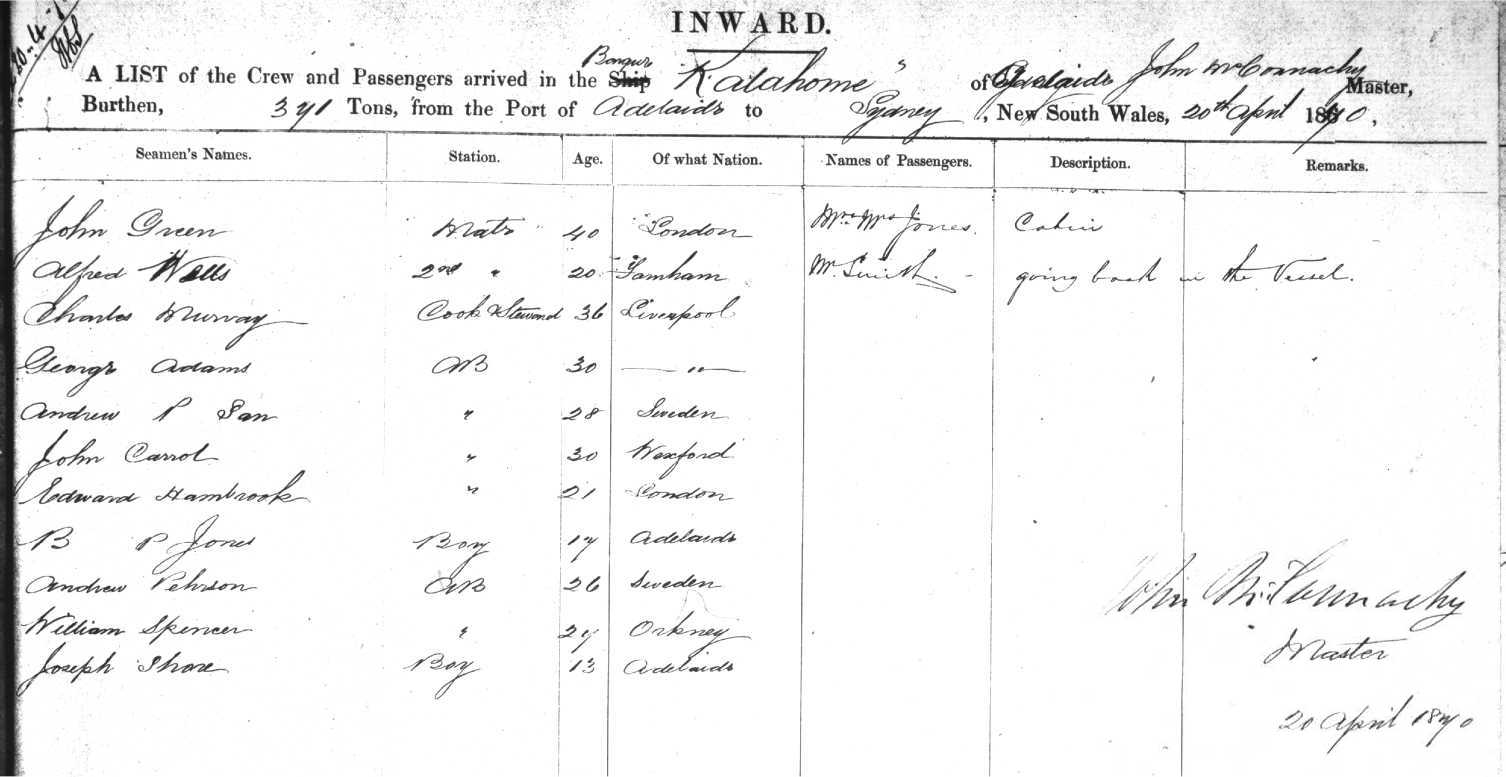 20-4-
INWARD.
Barque
A LIST of the Crew and Passengers arrived in the Ship "Kalahome" of Adelaide John McConnachy Master,
Burthen, 371 Tons, from the Port of Adelaide to Sydney, New South Wales, 20th April 1870,
Seamen's Names. Station. Age. Of what Nation. Names of Passengers. Description. Remarks.
John Green Mate 40 London Mr & Mrs Jones. Cabin
Alfred Wells 2nd " 20 Farnham Mr Smith. - going back in the Vessel.
Charles Murray Cook & Steward 36 Liverpool
George Adams AB 30 — " —
Andrew P San " 28 Sweden
John Carrol " 30 Wexford
Edward Hambrook " 21 London
B P Jones Boy 17 Adelaide
Andrew Pehrson AB 26 Sweden
William Spencer " 27 Orkney
Joseph Shore Boy 13 Adelaide
John McConnachy
Master
20 April 1870